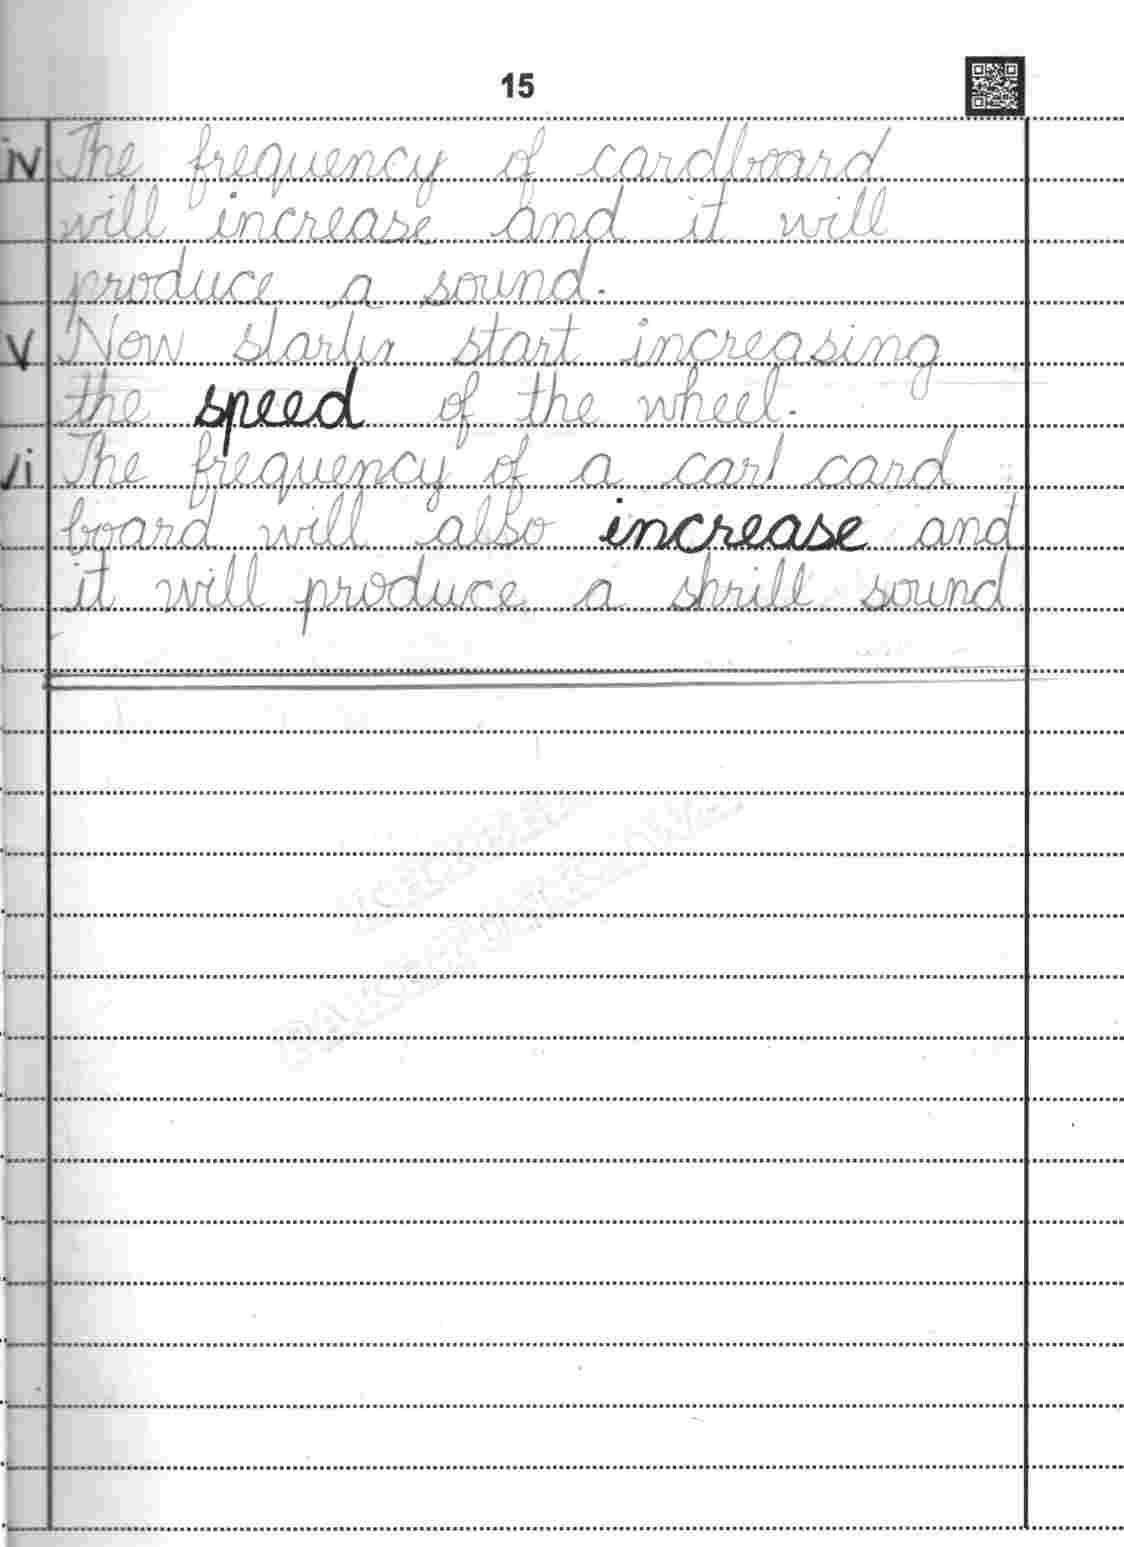 15
iv The frequency of cardboard
will increase and it will
produce a sound.
v Now start increasing
the speed of the wheel.
vi The frequency of a card
board will also increase and
it will produce a shrill sound